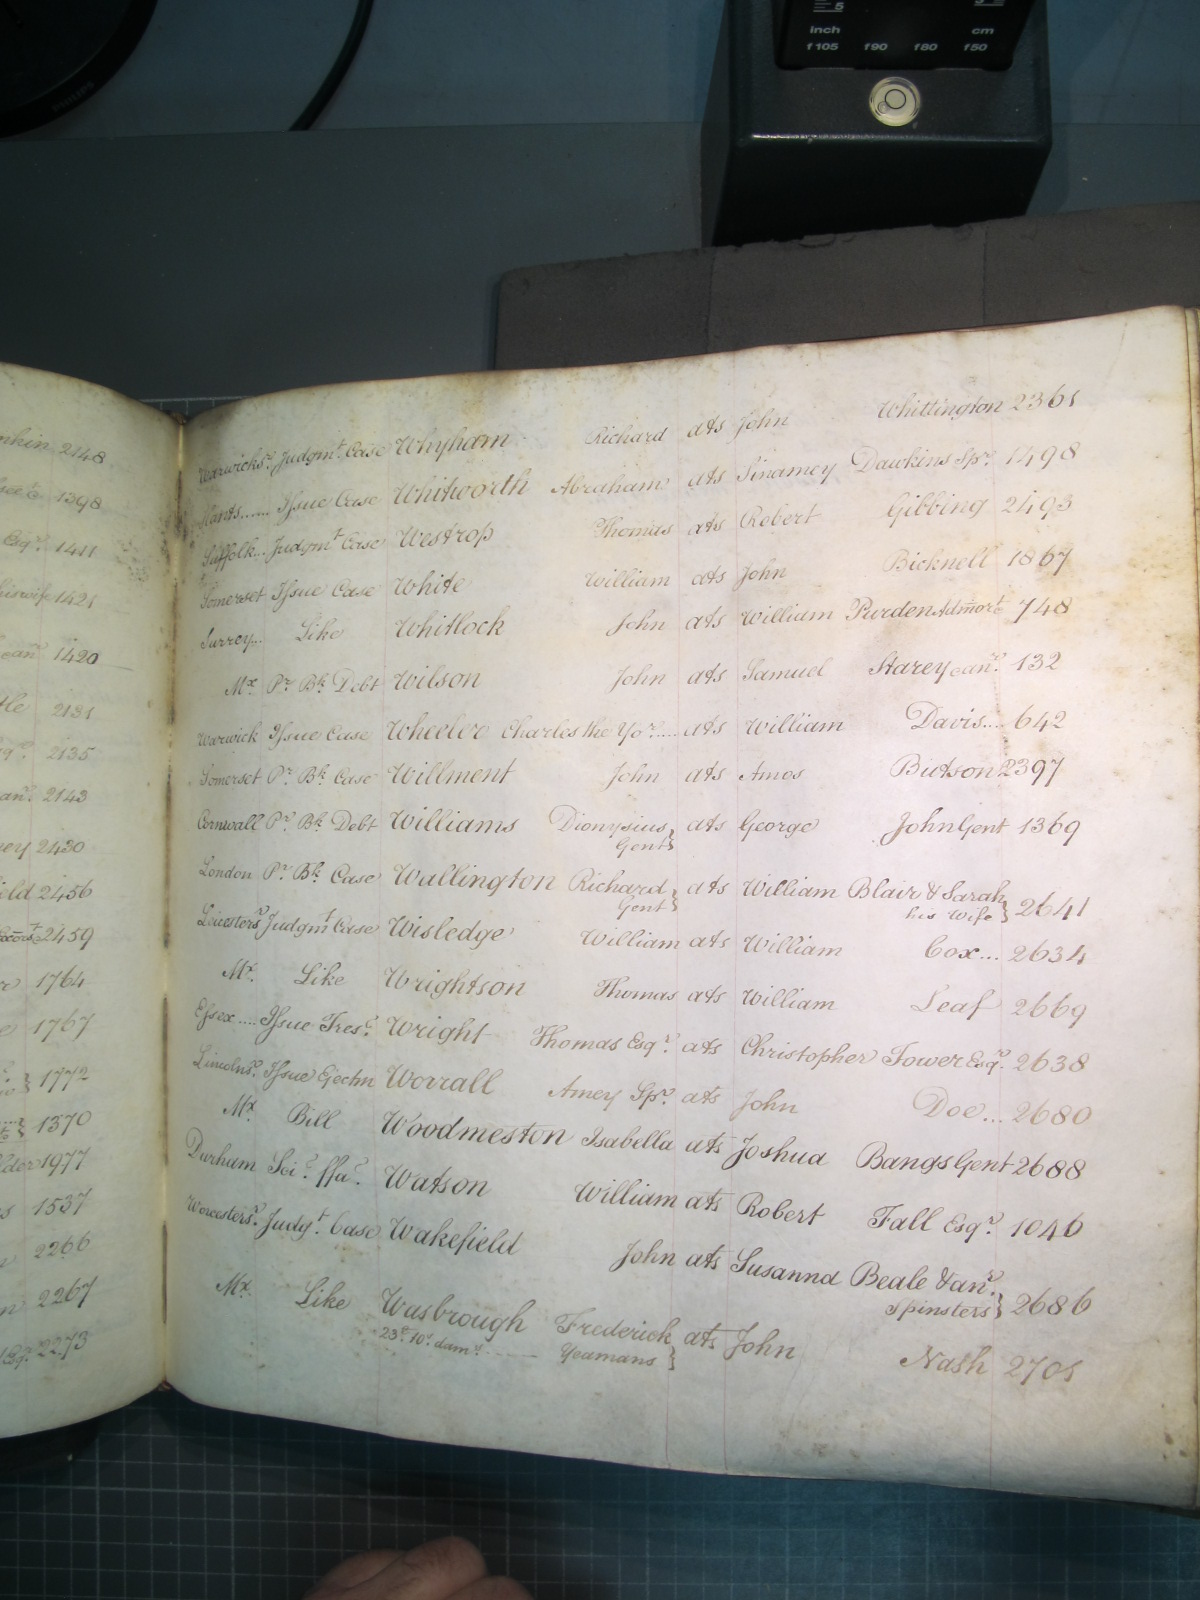 5
inch cm
f105 f90 f80 f50
PHILIPS
2148
1398
Esqr. 1411
his wife 1421
1420
2131
2135
2143
2430
2456
2459
1764
1767
1772
1370
1977
1537
2266
2267
2273
Warwicks. Judgmt. Case Whyham Richard ats John Whittington 2361
Hants...... Issue Case Whitworth Abraham ats Sinamey Dawkins Spr. 1498
Suffolk... Judgmt Case Westrop Thomas ats Robert Gibbing 2493
Somerset Issue Case White William ats John Bicknell 1867
Surrey... Like Whitlock John ats William Purden Admorte 748
Mx. Pr. Bk. Debt Wilson John ats Samuel Starey eanr. 132
Warwick Issue Case Wheeler Charles the Yor..... ats William Davis.... 642
Somerset Pr. Bk. Case Willment John ats Amos Butson 2397
Cornwall Pr. Bk. Debt Williams Dionysius ats George John Gent 1369
Gent
London Pr. Bk. Case Wallington Richard ats William Blair & Sarah
Gent his Wife 2641
Leicesters Judgmt Case Wisledge William ats William Cox... 2634
Mx. Like Wrightson Thomas ats William Leaf 2669
Essex..... Issue Tres. Wright Thomas Esqr. ats Christopher Tower Esqr. 2638
Lincolns. Issue Ejectm Worrall Amey Spr. ats John Doe... 2680
Mx. Bill Woodmeston Isabella ats Joshua Bangs Gent 2688
Durham Sci. ffa. Watson William ats Robert Fall Esqr. 1046
Worcesters. Judgt. Case Wakefield John ats Susanna Beale & anr.
Spinsters 2686
Mx. Like Wasbrough Frederick ats John Nash 2701
23£. 10s. dams. Yeamans